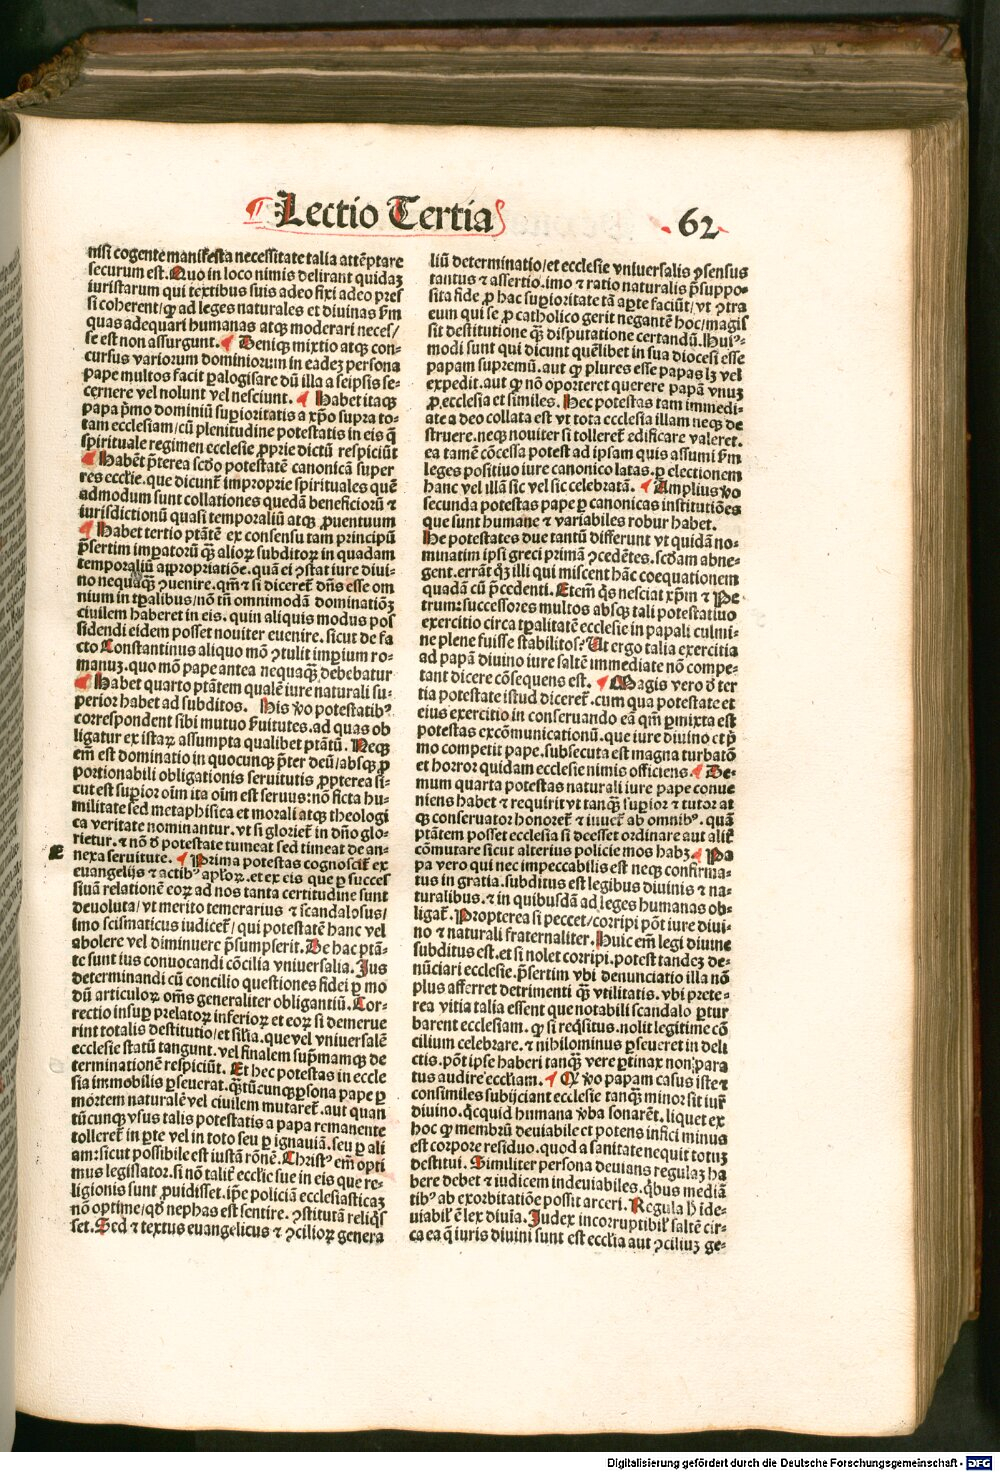 Lectio Tertia
62
nisi cogente manifesta necessitate talia attēptare
securum est. Quo in loco nimis delirant quidaʒ
iuristarum qui textibus suis adeo fixi adeo pres
si coherent/ꝙ ad leges naturales et diuinas ẜm
quas adequari humanas atqꝫ moderari neces/
se est non assurgunt. Deniqꝫ mixtio atqꝫ con-
cursus variorum dominiorum in eadeʒ persona
pape multos facit ꝑalogisare dū illa a seipsis se-
cernere vel nolunt vel nesciunt. Habet itaqꝫ
papa p̄mo dominiū suꝑioritatis a xp̄o supra to-
tam ecclesiam/cū plenitudine potestatis in eis q̄
spirituale regimen ecclesie ꝓprie dictū respiciūt
Habet p̄terea scd̓o potestatē canonicā super
res eccl̓ie. que dicunt̉ improprie spirituales quē
admodum sunt collationes quedā beneficiorū ⁊
iurisdictionū quasi temporaliū atqꝫ ꝓuentuum
Habet tertio ptātē ex consensu tam principū
p̄sertim imꝑatorū qꝫ̄ alioꝝ subditoꝝ in quadam
temporaliū appropriatiōe. quā ei ꝯstat iure diui-
no nequaqꝫ̄ ꝯuenire. qm̄ ⁊ si diceret̉ dn̄s esse om
nium in tꝑalibus/nō tn̄ omnimodā dominatiōʒ
ciuilem haberet in eis. quin aliquis modus pos
sidendi eidem posset nouiter euenire. sicut de fa
cto Constantinus aliquo mō ꝯtulit imꝑium ro-
manuʒ. quo mō pape antea nequaqꝫ̄ debebatur
Habet quarto ptātem qualē iure naturali su-
perior habet ad subditos. His v̓o potestatibꝰ
correspondent sibi mutuo ẜuitutes. ad quas ob
ligatur ex istaꝝ assumpta qualibet ptātū. Neqꝫ
em̄ est dominatio in quocunqꝫ p̄ter deū/absqꝫ ꝓ
portionabili obligationis seruitutis ꝓpterea si-
cut est suꝑior oīm ita oīm est seruus: nō ficta hu-
militate sed metaphisica et morali atqꝫ theologi
ca veritate nominantur. vt si gloriet̉ in dn̄o glo-
rietur. ⁊ nō d̓ potestate tumeat sed timeat de an-
nexa seruitute. Prima potestas cognoscit̉ ex
euangelijs ⁊ actibꝰ apl̓oꝝ. et ex eis que ꝑ succes
siuā relationē eoꝝ ad nos tanta certitudine sunt
deuoluta/vt merito temerarius ⁊ scandalosus/
imo scismaticus iudicet̉/qui potestatē hanc vel
abolere vel diminuere p̄sumpserit. De hac ptā-
te sunt ius conuocandi cōcilia vniuersalia. Jus
determinandi cū concilio questiones fidei ꝑ mo
dū articuloꝝ om̄s generaliter obligantiū. Cor-
rectio insuꝑ prelatoꝝ inferioꝝ et eoꝝ si demerue
rint totalis destitutio/et sil̓ia. que vel vniuersalē
ecclesie statū tangunt. vel finalem sup̄mamqꝫ de
terminationē respiciūt. Et hec potestas in eccle
sia immobilis ꝑseuerat. qꝫ̄tūcunqꝫ ꝑsona pape ꝑ
mortem naturalē vel ciuilem mutaret̉. aut quan
tūcunqꝫ vsus talis potestatis a papa remanente
tolleret̉ in ꝑte vel in toto seu ꝑ ignauiā. seu ꝑ ali
am: sicut possibile est iustā rōnē. Christꝰ em̄ opti
mus legislator. si nō talit̉ eccl̓ie sue in eis que re-
ligionis sunt ꝓuidisset. ip̄e policiā ecclesiasticaʒ
nō optime/qd̓ nephas est sentire. ꝯstitutā reliqͥs
set. Sed ⁊ textus euangelicus ⁊ ꝯcilioꝝ genera
liū determinatio/et ecclesie vniuersalis ꝯsensus
tantus ⁊ assertio. imo ⁊ ratio naturalis p̄suppo-
sita fide ꝓ hac suꝑioritate tā aꝑte faciūt/vt ꝯtra
eum qui se ꝓ catholico gerit negantē hoc/magis
sit destitutione qꝫ̄ disputatione certandū. Huiꝰ-
modi sunt qui dicunt quēlibet in sua diocesi esse
papam supremū. aut ꝙ plures esse papas lꝫ vel
expedit. aut ꝙ nō oporteret querere papā vnuʒ
ꝓ ecclesia et similes. Hec potestas tam immedi-
ate a deo collata est vt tota ecclesia illam neqꝫ de
struere. neqꝫ nouiter si tolleret̉ edificare valeret.
ea tamē cōcessa potest ad ipsam quis assumi ẜm
leges positiuo iure canonico latas. ꝑ electionem
hanc vel illā sic vel sic celebratā. Amplius v̓o
secunda potestas pape ꝑ canonicas institutiōes
que sunt humane ⁊ variabiles robur habet.
He potestates due tantū differunt vt quidā no-
minatim ipsi greci primā ꝯcedētes. scd̓am abne-
gent. errāt qͦꝫ illi qui miscent hāc coequationem
quadā cū p̄cedenti. Etem̄ qͥs nesciat xp̄m ⁊ Pe
trum: successores multos absqꝫ tali potestatiuo
exercitio circa tꝑalitatē ecclesie in papali culmi-
ne plene fuisse stabilitos? Ut ergo talia exercitia
ad papā diuino iure saltē immediate nō compe-
tant dicere cōsequens est. Magis vero d̓ ter
tia potestate istud diceret̉. cum qua potestate et
eius exercitio in conseruando eā qm̄ ꝑmixta est
potestas excōmunicationū. que iure diuino et p̄
mo competit pape. subsecuta est magna turbatō
et horror quidam ecclesie nimis officiens. De-
mum quarta potestas naturali iure pape conue
niens habet ⁊ requirit vt tanqꝫ̄ suꝑior ⁊ tutor at
qꝫ conseruator honoret̉ ⁊ iuuet̉ ab omnibꝰ. quā
ptātem posset ecclesia si dcesset ordinare aut alit̉
cōmutare sicut alterius policie mos habꝫ. Pa
pa vero qui nec impeccabilis est neqꝫ confirma-
tus in gratia. subditus est legibus diuinis ⁊ na-
turalibus. ⁊ in quibusdā ad leges humanas ob-
ligat̉. Propterea si peccet/corripi pōt iure diui-
no ⁊ naturali fraternaliter. Huic em̄ legi diuine
subditus est. et si nolet corripi. potest tandeʒ de-
nūciari ecclesie. p̄sertim vbi denunciatio illa nō
plus afferret detrimenti qꝫ̄ vtilitatis. vbi prete-
rea vitia talia essent que notabili scandalo ꝑtur
barent ecclesiam. ꝙ si reqͥsitus. nolit legitime cō
cilium celebrare. ⁊ nihilominus ꝑseueret in deli
ctis. pōt ipse haberi tanqꝫ̄ vere ꝑtinax non para
tus audire eccl̓iam. Qͥ v̓o papam casus iste ⁊
consimiles subijciant ecclesie tanqꝫ̄ minor sit iur̉
diuino. qͥcquid humana v̓ba sonarēt. liquet ex
hoc ꝙ membrū deuiabile et potens infici minus
est corpore residuo. quod a sanitate nequit totuʒ
destitui. Similiter persona deuians regulaʒ ha
bere debet ⁊ iudicem indeuiabiles. qͥbus mediā
tibꝰ ab exorbitatiōe possit arceri. Regula h̓ ide-
uiabil̓ ē lex diuīa. Judex incorruptibil̓ saltē cir-
ca ea q̄ iuris diuini sunt est eccl̓ia aut ꝯciliuʒ ge-
Digitalisierung gefördert durch die Deutsche Forschungsgemeinschaft - DFG